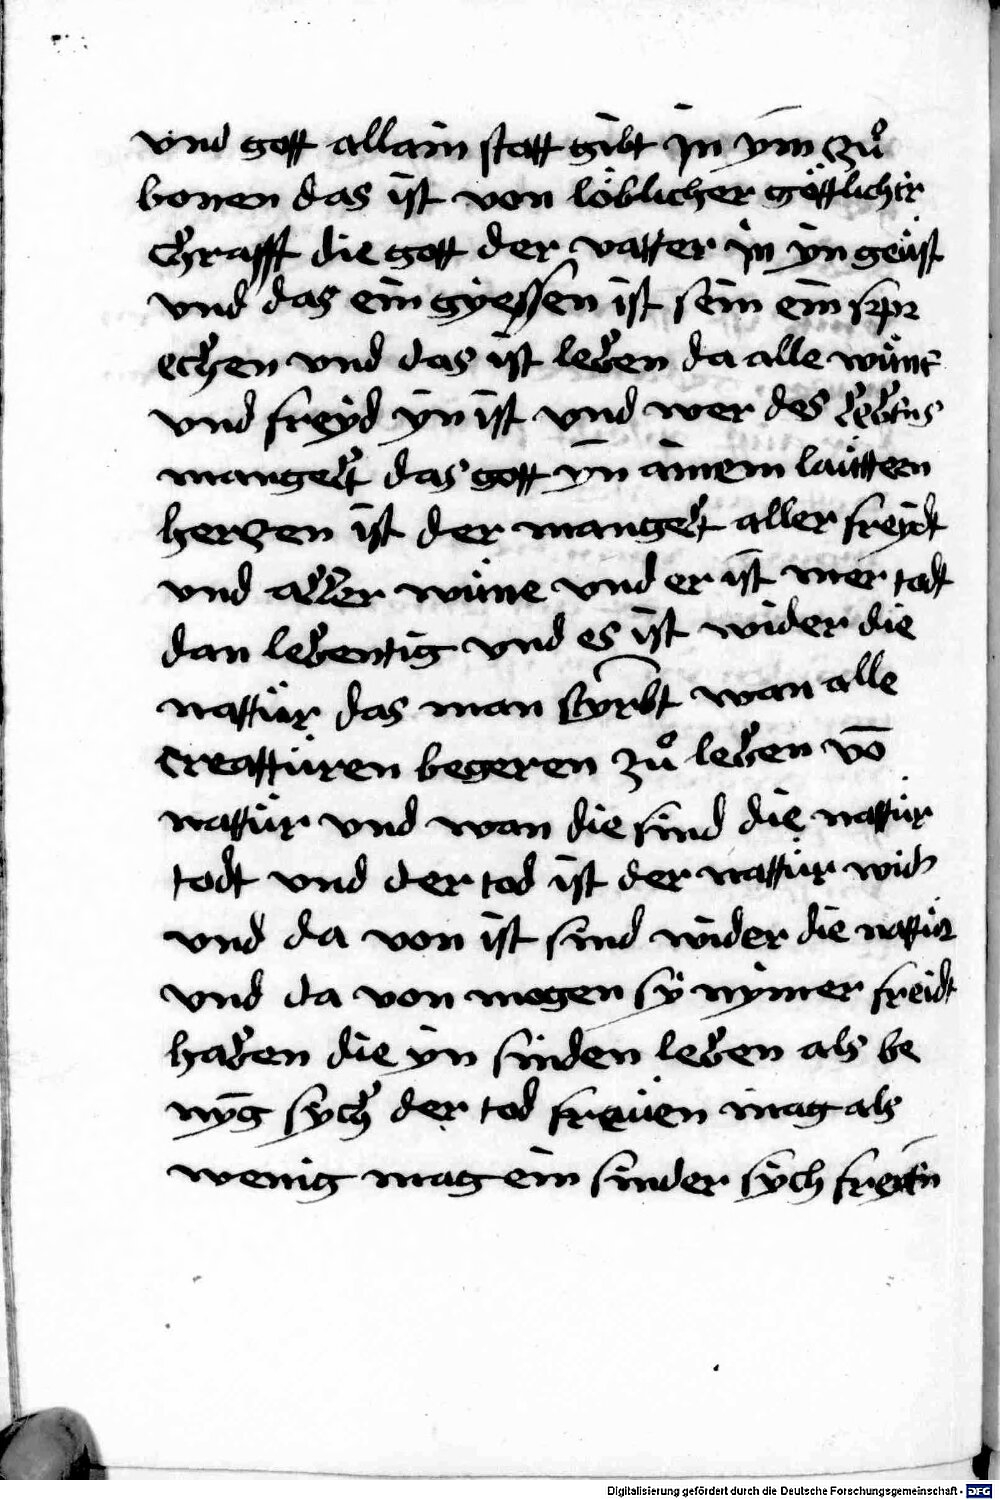 vnd gott allain statt gibt jn ym zuͦ
bonen das ist von löblicher göttlichir
chrafft die gott der vatter in yn geüst
vnd das ein gyessen ist sein ein spr
echen vnd das ist leben da alle wünē
vnd freyd yn ist vnd wer des lebens
mangelt das gott yn ainem lauttern
herczen ist der mangelt aller freydt
vnd aller wüne vnd er ist mer todt
dan lebentig vnd es ist wider die
nattür das man styrbt wan alle
creattüren begeren zuͦ leben vō
nattür vnd wan die sind die nattür
todt vnd der tod ist der nattür wid
vnd da von ist sind wider die nattür
vnd da von mogen sÿ nymer freidt
haben die yn sinden leben als be
nyg sych der tod freüen mag als
wenig mag ein sinder sych